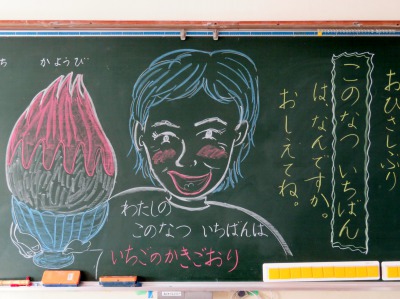 おひさしぶり
このなつ いちばん
はなんですか。
おしえてね。
ち かようび
わたしの
このなつ いちばんは
いちごのかきごおり